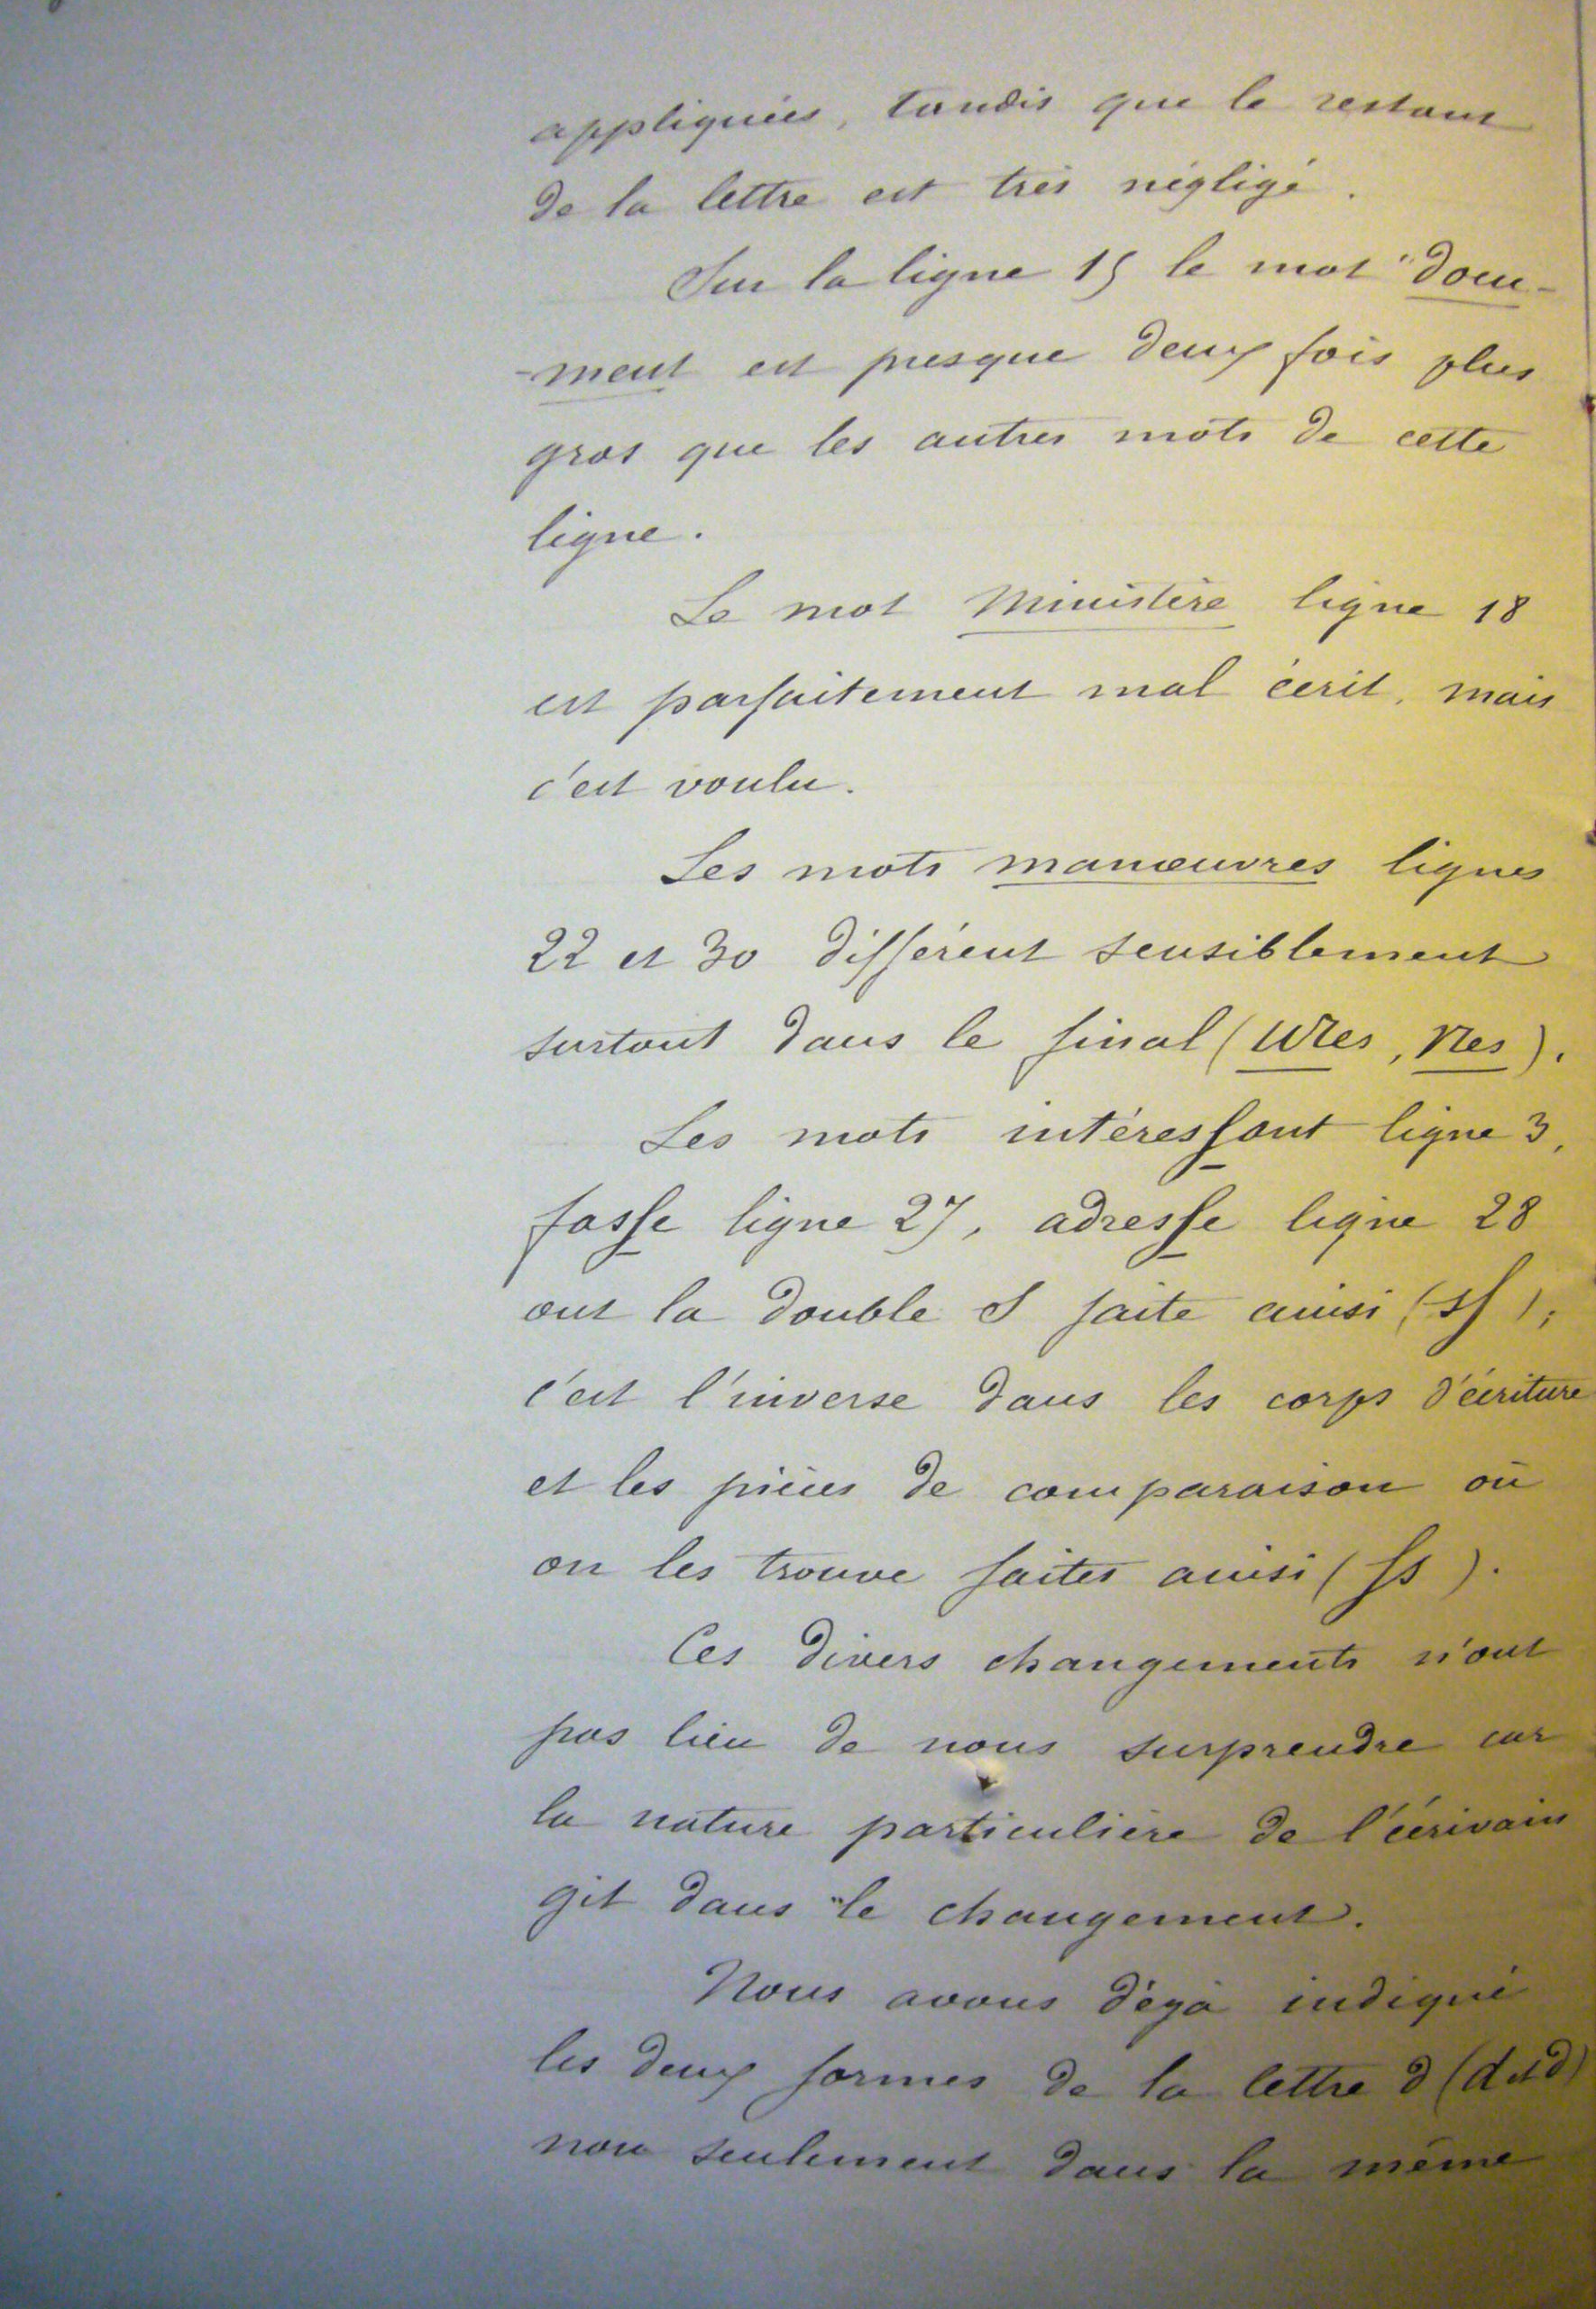 appliquées, tandis que le restant
de la lettre est très négligé.
Sur la ligne 15 le mot "docu-
-ment est presque deux fois plus
gros que les autres mots de cette
ligne.
Le mot Ministère ligne 18
est parfaitement mal écrit, mais
c'est voulu.
Les mots manœuvres lignes
22 et 30 différent sensiblement
surtout dans le final (uvres, vres).
Les mots intéressant ligne 3,
fasse ligne 27, adresse ligne 28
ont la double S faite ainsi (sſ);
c'est l'inverse dans les corps d'écriture
et les pièces de comparaison où
on les trouve faites ainsi (ſs).
Ces divers changements n'ont
pas lieu de nous surprendre car
la nature particulière de l'écrivain
git dans le changement.
Nous avons déjà indiqué
les deux formes de la lettre d (d et ∂)
non seulement dans la même